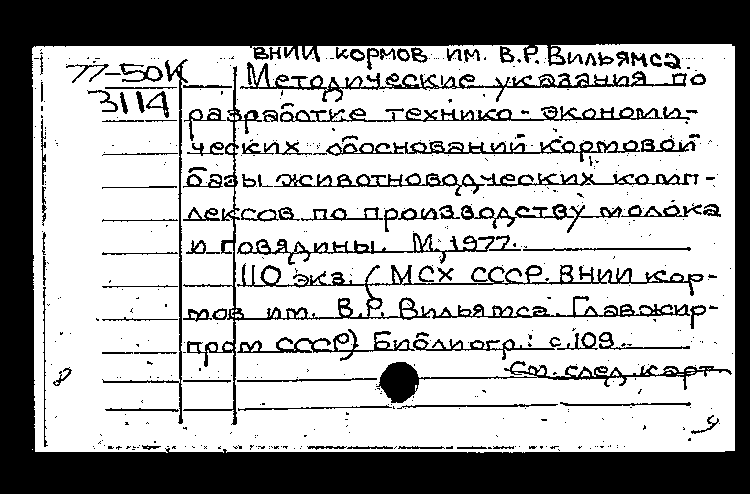 ВНИИ кормов им. В.Р. Вильямса
77-50К Методические указания по
3114 разработке технико-экономи-
ческих обоснований кормовой
базы животноводческих комп-
лексов по производству молока
и говядины. М., 1977.
110 экз. (МСХ СССР. ВНИИ кор-
мов им. В.Р. Вильямса. Главжир-
пром СССР) Библиогр.: с.109.
См. след. карт